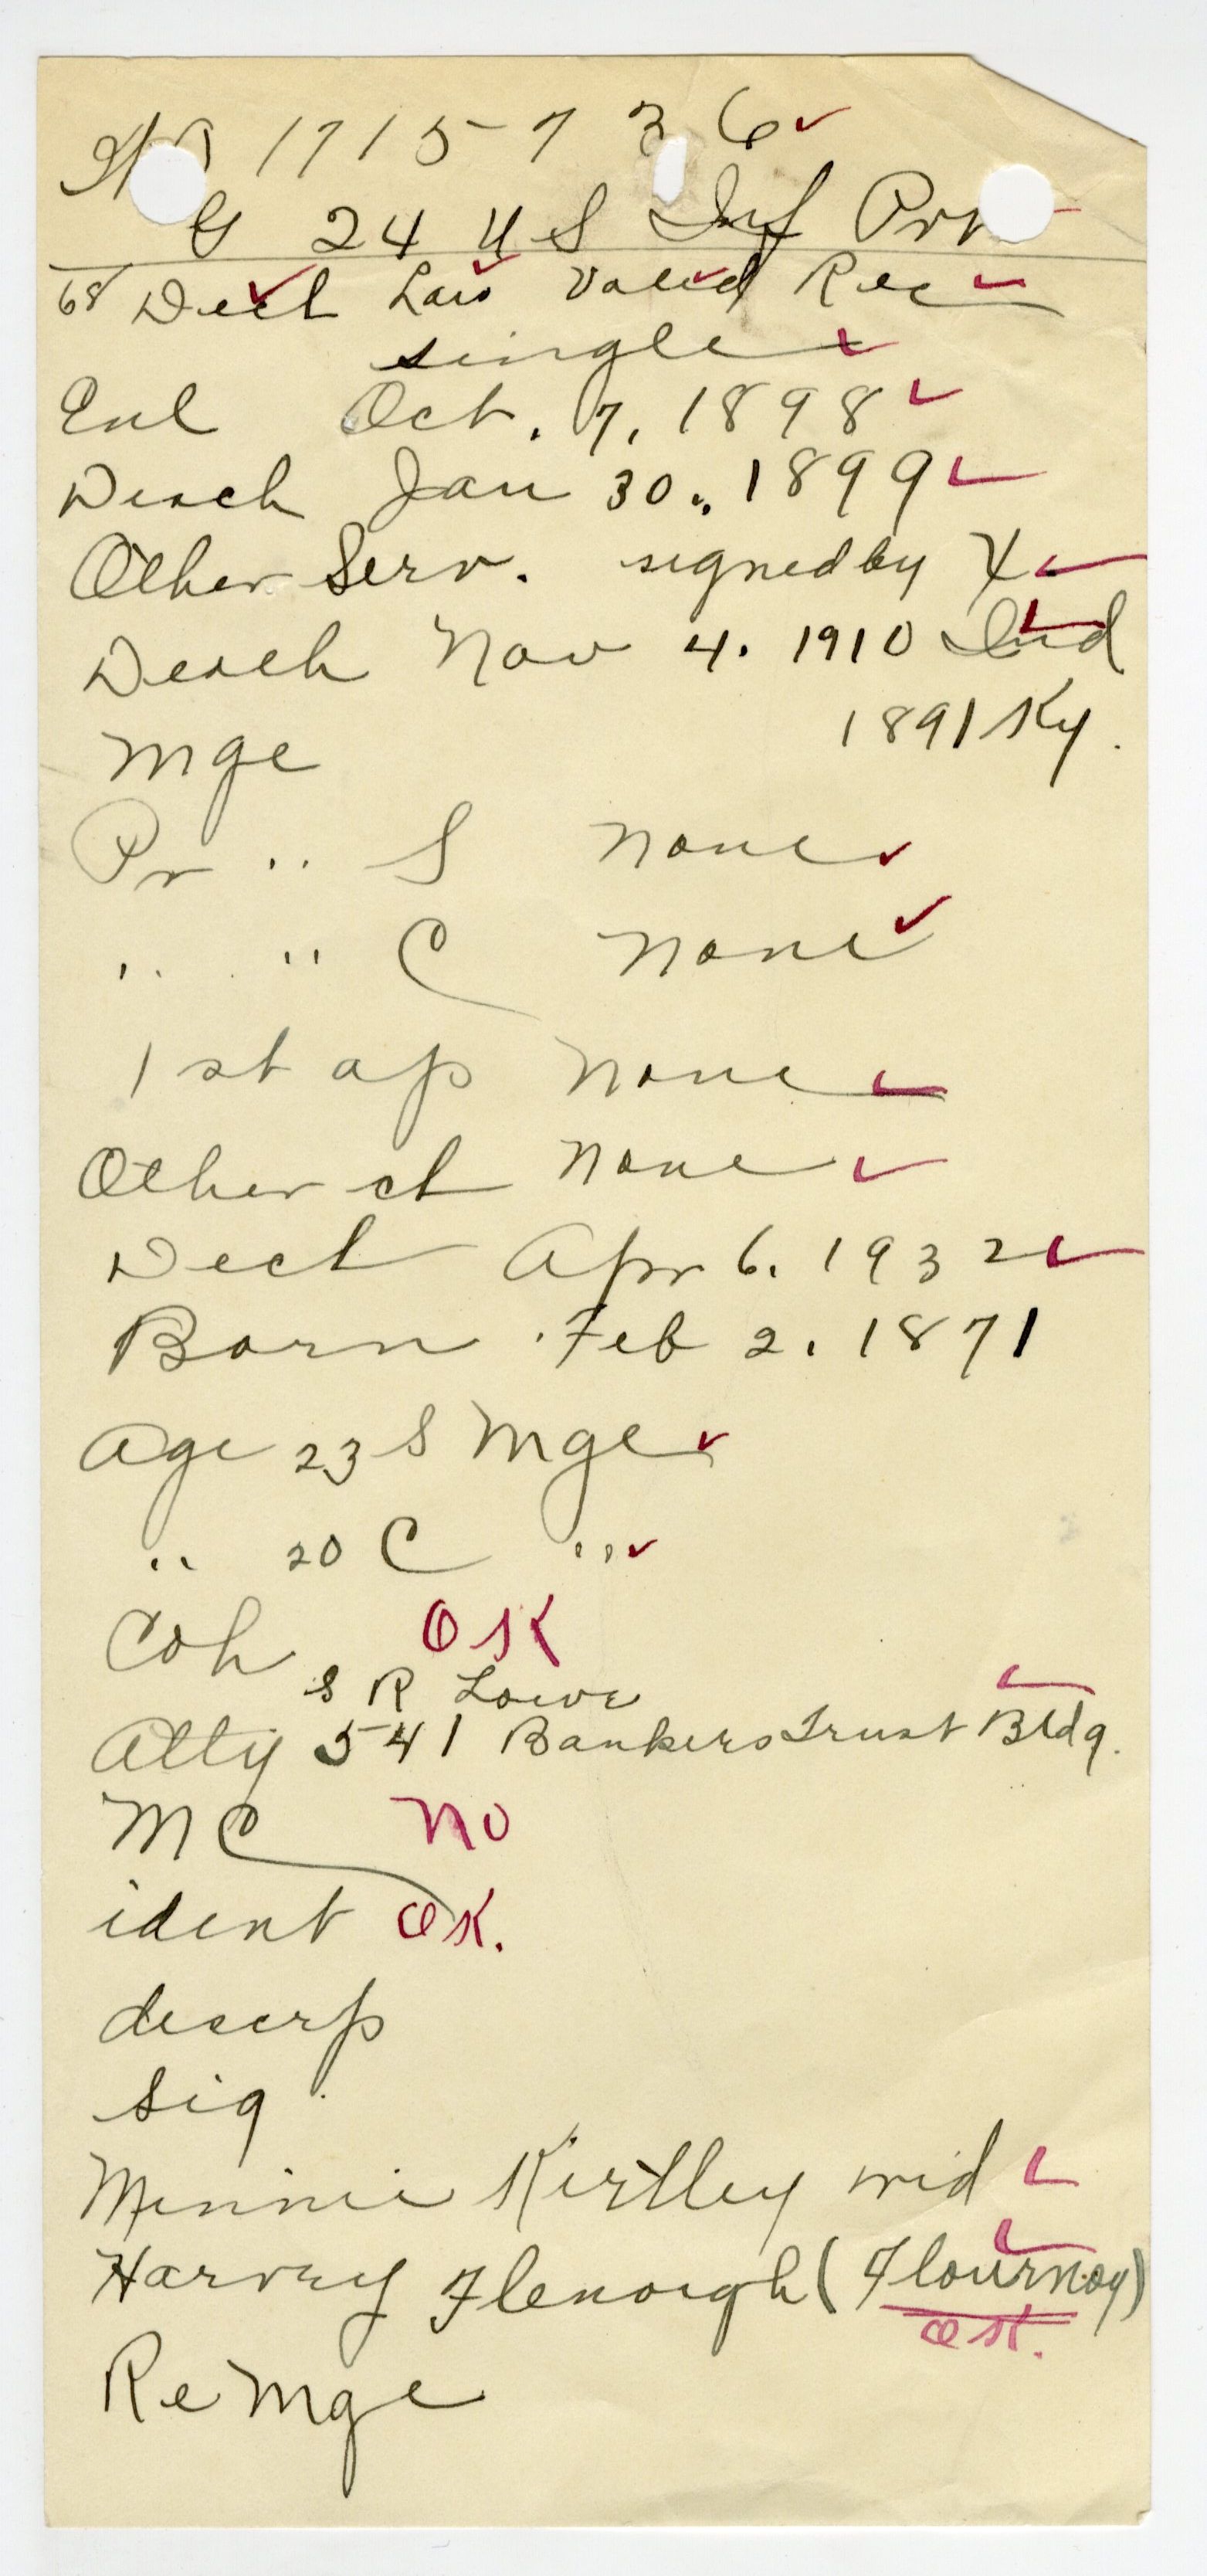 1715736
G 24 U S Inf Prv
68 Decl Law Valid Rec
single
Enl Oct. 7, 1898
Disch Jan 30., 1899
Other Serv. signed by X
Death Nov 4. 1910 Ind
1891 Ky.
Mge
Pr " S None
" " C None
1st ap None
Other ch None
Decl Apr 6. 1932
Born Feb 2. 1871
Age 23 S Mge
" 20 C "
Coh OK
S R Lowe
Atty 541 Bankers Trust Bldg.
M C No
ident OK.
descrp
Sig
Minnie Kirtley wid
Harvey Flenough (Flournoy)
Re Mge